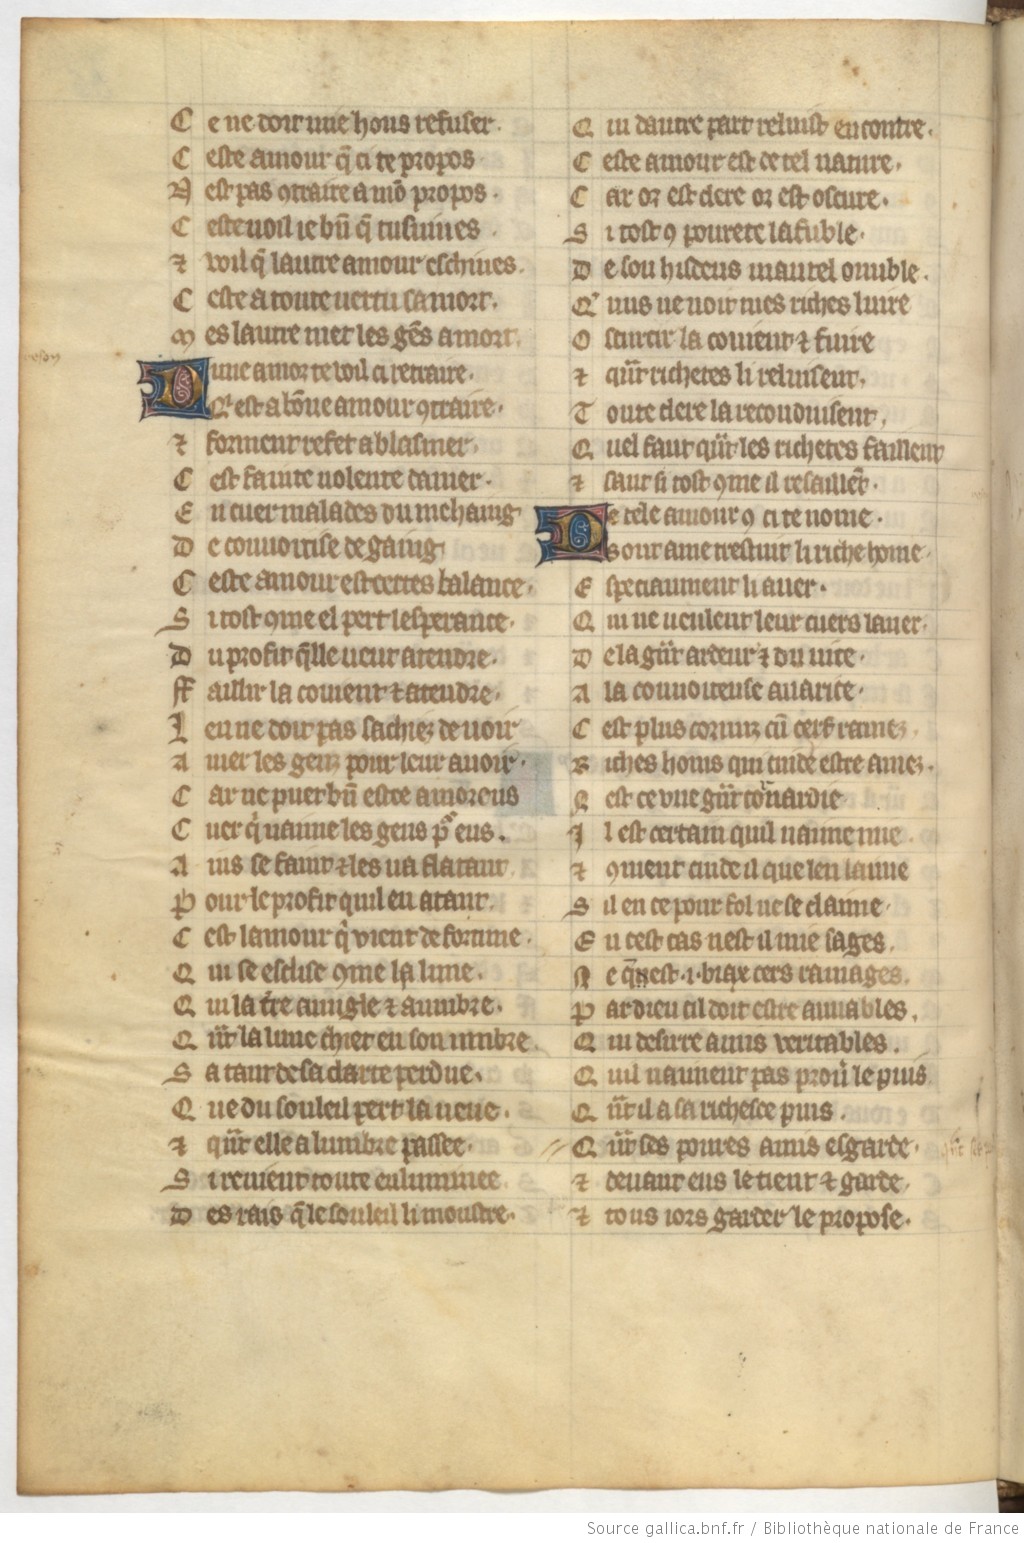 C e ne doit mie hons refuser.
C este amour q̄ ci te propos
N est pas ꝯtraire a mō propos.
C este uoil ie bn̄ q̄ tu siuies
⁊ voil q̄ lautre amour eschiues.
C este a toute uertu samort.
M es lautre met les gēs a mort.
D une amor te voil ci retraire.
Qͥ est a bōne amour ꝯtraire.
⁊ forment refet a blasmer.
C est fainte uolente damer.
E n cuer malades du mehaing
D e couuoitise de gaing
C este amour est certes balance.
S i tost ꝯme el pert lesperance.
D u profit q̄lle ueut atendre.
ff aillir la couient ⁊ atendre.
L en ne doit pas sachiez de uoir
A mer les genz pour leur auoir.
C ar ne puet bn̄ estre amoreus
C uer qͥ naime les gens pͬ eus.
A ins se faint ⁊ les ua flatant
P our le profit quil en atant.
C est lamour qͥ vient de fortune.
Q ui se esclise ꝯme la lune.
Q ui la t̄re auugle ⁊ anumbre.
Q n̄t la lune chiet en son umbre.
S a tant de sa clarte perdue.
Q ue du souleil pert la ueue.
⁊ qn̄t elle a lumbre passee.
S i reuient toute enluminee
D es rais q̄ le souleil li moustre.
Q ui dautre part reluist encontre.
C este amour est de tel nature.
C ar or est clere or est oscure.
S i tost ꝯ pourete lafuble.
D e son hisdeus mantel onuble.
Qͥ nus ne voit mes riches luire
O scurcir la couient ⁊ fuire
⁊ qn̄t richetes li reluisent,
T oute clere la reconduisent,
Q uel faut qn̄t les richetes faillent
⁊ saut si tost ꝯme il resaillēt.
D e tele amour ꝯ ci te nome.
Sont ame trestuit li riche home.
E speciaument li auer.
Q ui ne ueulent leur cuers lauer.
D e la gn̄t ardeur ⁊ du vice.
A la couuoiteuse auarice.
C est plus cornuz cū cerf ramez.
R iches homs qui cuide estre amez.
N est ce vne gn̄t cornardie
I l est certain quil naime mie.
⁊ ꝯment cuide il que len laime
S il en ce pour fol ne se claime
E n cest cas nest il mie sages.
N e q̄ nest .i. biax cers ramages.
P ar dieu cil doit estre amiables.
Q ui desirre amis veritables.
Q uil naiment pas prouu̇ le puis
Q n̄t il a sa richesce puis.
Q n̄t ses poures amis esgarde.
⁊ deuant eus le tient ⁊ garde.
⁊ tous iors garder le propose.
Source gallica.bnf.fr / Bibliothèque nationale de France